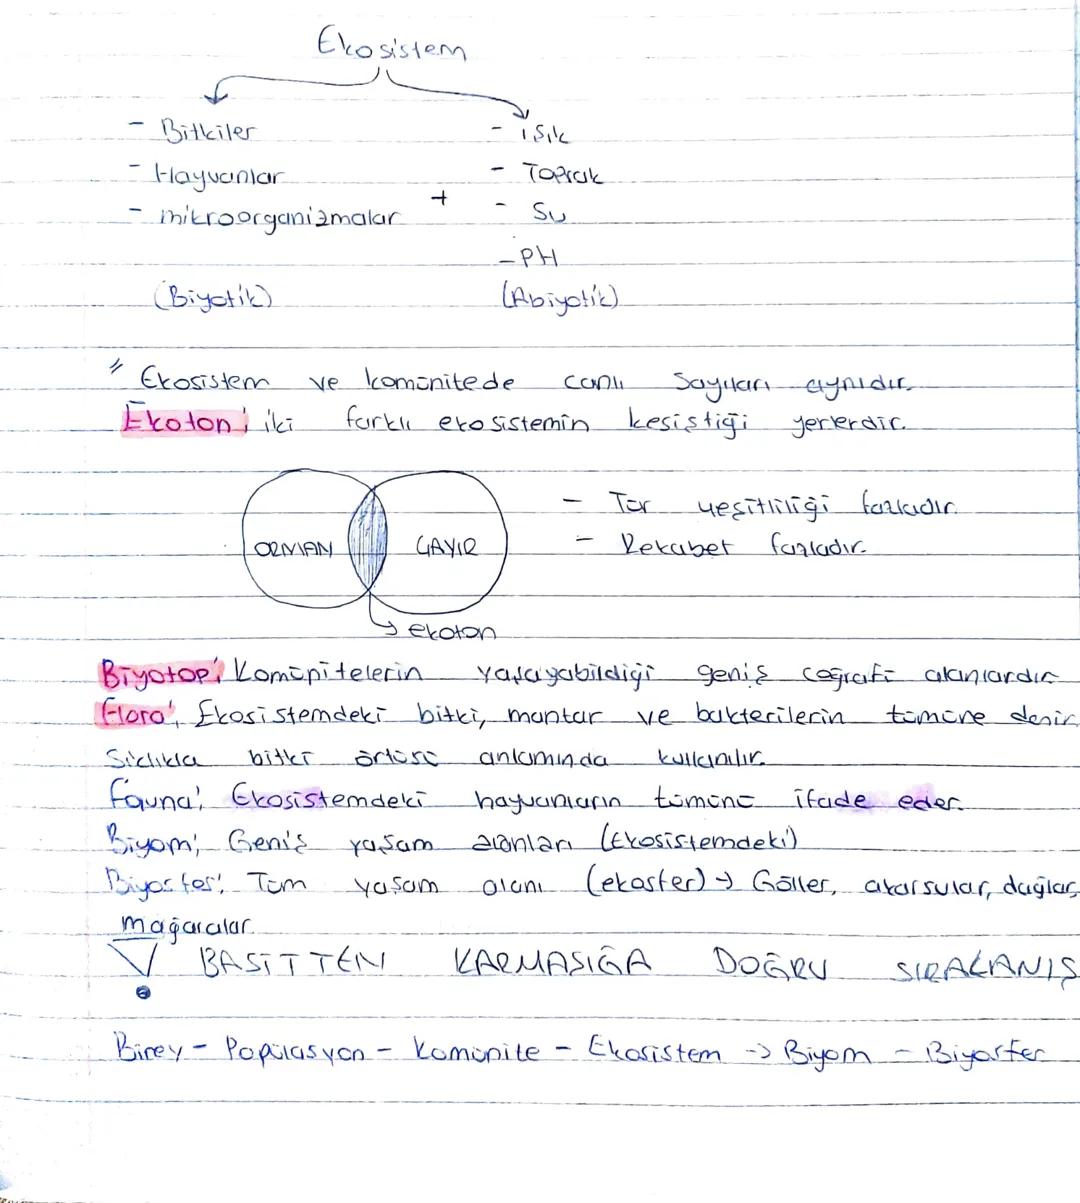 Ekosistem
- Bitkiler
- Hayvanlar
- mikroorganizmalar
(Biyotik)
+
- ışık
- Toprak
- Su
- PH
(Abiyotik)
" Ekosistem ve komünitede canlı sayıları aynıdır.
Ekoton; iki farklı ekosistemin kesiştiği yerlerdir.
ORMAN
ÇAYIR
ekoton
- Tür çeşitliliği fazladır.
- Rekabet fazladır.
Biyotop; Komünitelerin yaşayabildiği geniş coğrafi alanlardır
Flora; Ekosistemdeki bitki, mantar ve bakterilerin tümüne denir.
Sıklıkla bitki örtüsü anlamında kullanılır.
Fauna; Ekosistemdeki hayvanların tümünü ifade eder.
Biyom; Geniş yaşam alanları (Ekosistemdeki)
Biyosfer; Tüm yaşam alanı (ekosfer) → Göller, akarsular, dağlar,
mağaralar.
! BASİTTEN KARMAŞIĞA DOĞRU SIRALANIŞ
Birey - Popülasyon - Komünite - Ekosistem -> Biyom - Biyosfer